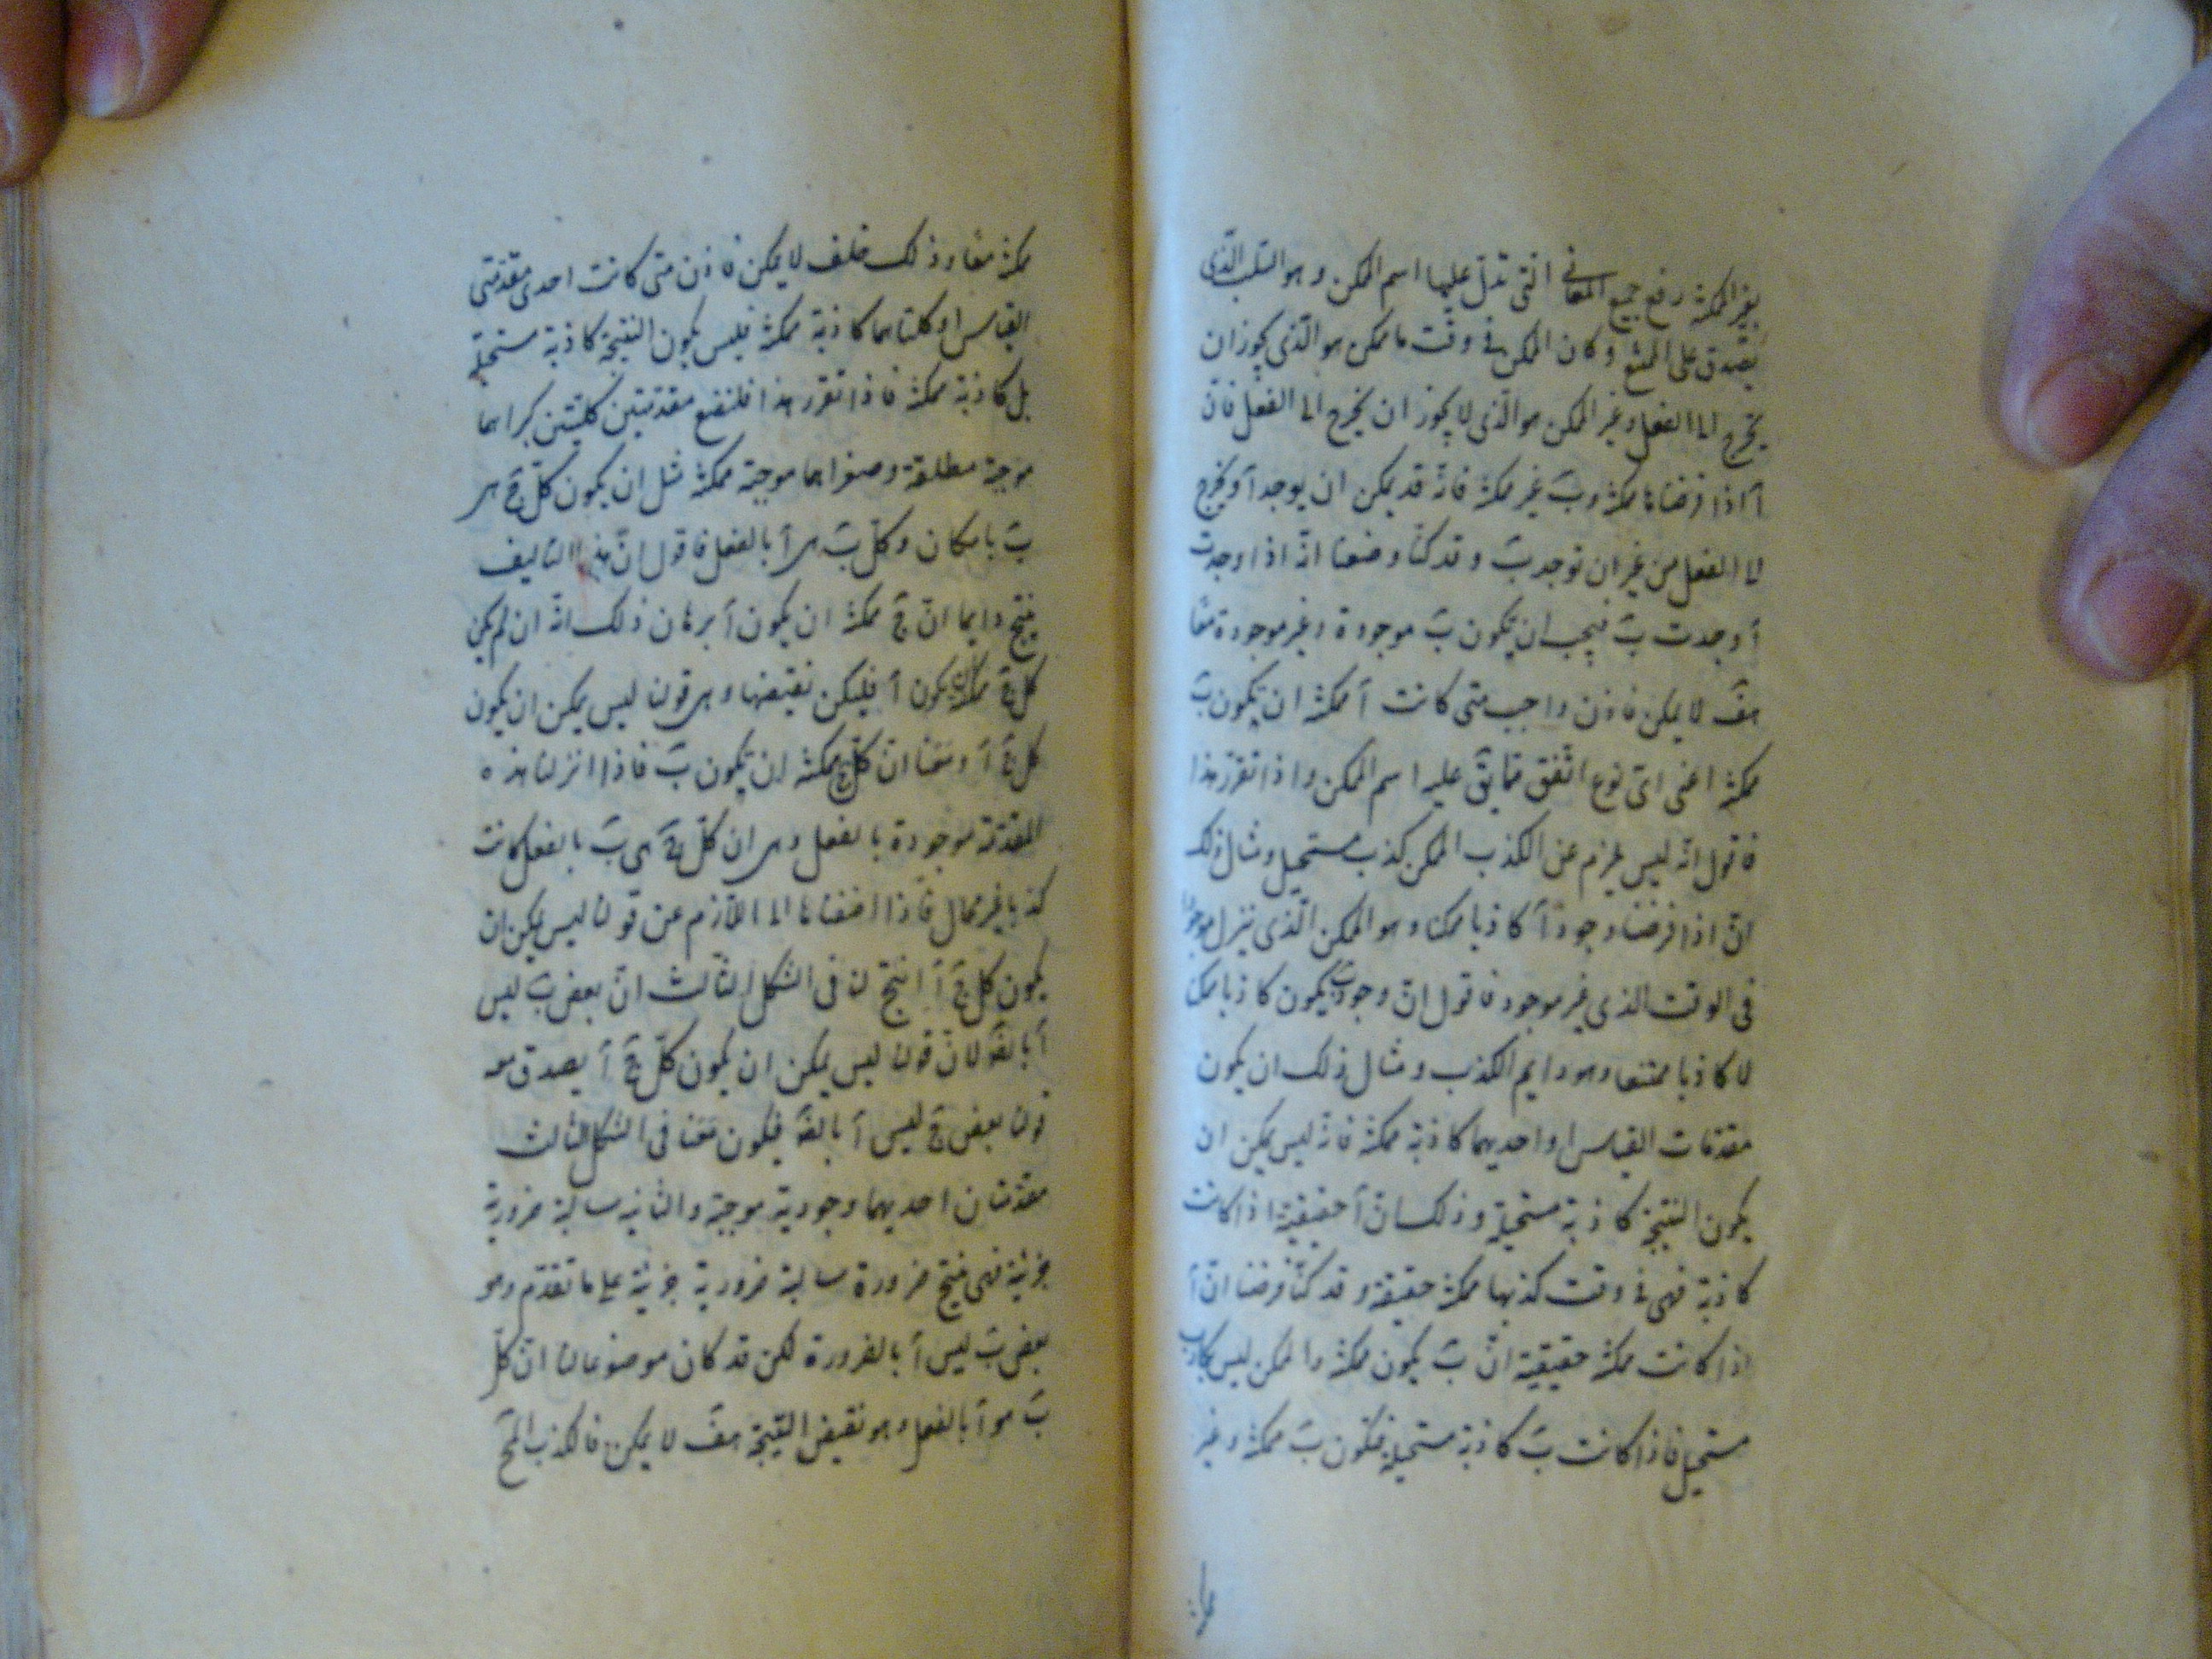 بغير الممكنة رفع جميع المعاني التى تدلّ عليها اسم الممكن وهو السّلب الّذى
يصدق على الممتنع وكان الممكن فى وقت ما ممكن هو الّذى يجوز ان
يخرج الى الفعل وغير الممكن هو الّذى لا يجوز ان يخرج الى الفعل فانّ
آ اذا فرضناها ممكنة وبَ غير ممكنة فانّه قد يمكن ان يوجد آ ويخرج
الى الفعل من غير ان توجد بَ وقد كنّا وضعنا انّه اذا وجدت
آ وجدت بَ فيجب ان يكون بَ موجودة وغير موجودة معًا
هفَ لا يمكن فاذن واجب متى كانت آ ممكنة ان يكون بَ
ممكنة اعنى اىّ نوع اتّفق ممّا يقَ عليه اسم الممكن واذا تقرّر هذا
فاقول انّه ليس يلزم عن الكذب الممكن كذب مستحيل ومثال ذلك
انّ اذا فرضنا وجود آ كاذبا ممكنا وهو الممكن الّذى ينزل موجودا
فى الوقت الذى غير موجود فاقول انّ وجود بَ يكون كاذبا ممكنا
لا كاذبا ممتنعا وهو دايم الكذب ومثال ذلك ان يكون
مقدّمات القياس او احديهما كاذبة ممكنة فانّه ليس يمكن ان
يكون النتيجة كاذبة مستحيلة وذلك انّ آ حقيقية اذا كانت
كاذبة فهى فى وقت كذبها ممكنة حقيقة وقد كنّا فرضنا انّ آ
اذا كانت ممكنة حقيقية انّ بَ يكون ممكنة والممكن ليس بكاذب
مستحيل فاذا كانت بَ كاذبة مستحيلة فيكون بَ ممكنة وغير
ممكنة معا وذلك خلف لا يمكن فاذن متى كانت احدى مقدّمتى
القياس او كلتاهما كاذبة ممكنة فليس يكون النتيجة كاذبة مستحيلة
بل كاذبة ممكنة فاذا تقرّر هذا فلنضع مقدّمتين كلّيتين كبراهما
موجبة مطلقة وصغراهما موجبة ممكنة مثل ان يكون كلّ جَ هى
بَ بامكان وكلّ بَ هى آ بالفعل فاقول انّ هذا التاليف
ينتج دايما انّ جَ ممكنة ان يكون آ برهان ذلك انّه ان لم يكن
كل جَ ممكنا ان يكون آ فليكن نقيضها وهى قولنا ليس يمكن ان يكون
كل جَ آ ومعنا انّ كلّ جَ ممكنة ان يكون بَ فاذا انزلنا هذه
المقدّمة موجودة بالفعل وهى ان كلّ جَ هى بَ بالفعل كانت
كذبا غير محال فاذا اضفناها الى اللّازم عن قولنا ليس يمكن ان
يكون كل جَ آ انتج لنا فى الشكل الثّالث انّ بعض بَ ليس
آ بالضَّ لانّ قولنا ليس يمكن ان يكون كلّ جَ آ يصدق معه
قولنا بعض جَ ليس آ بالضَّ فيكون معنا فى الشكل الثالث
مقدّمتان احديهما وجودية موجبة والثانية سالبة ضرورية
جزئية فهى ينتج ضرورة سالبة ضرورية جزئية على ما تقدّم وهو
بعض بَ ليس آ بالضرورة لكن قد كان موضوعا لنا انّ كلّ
بَ هو آ بالفعل وهو نقيض النّتيجة هفَ لا يمكن فالكذب المحَ